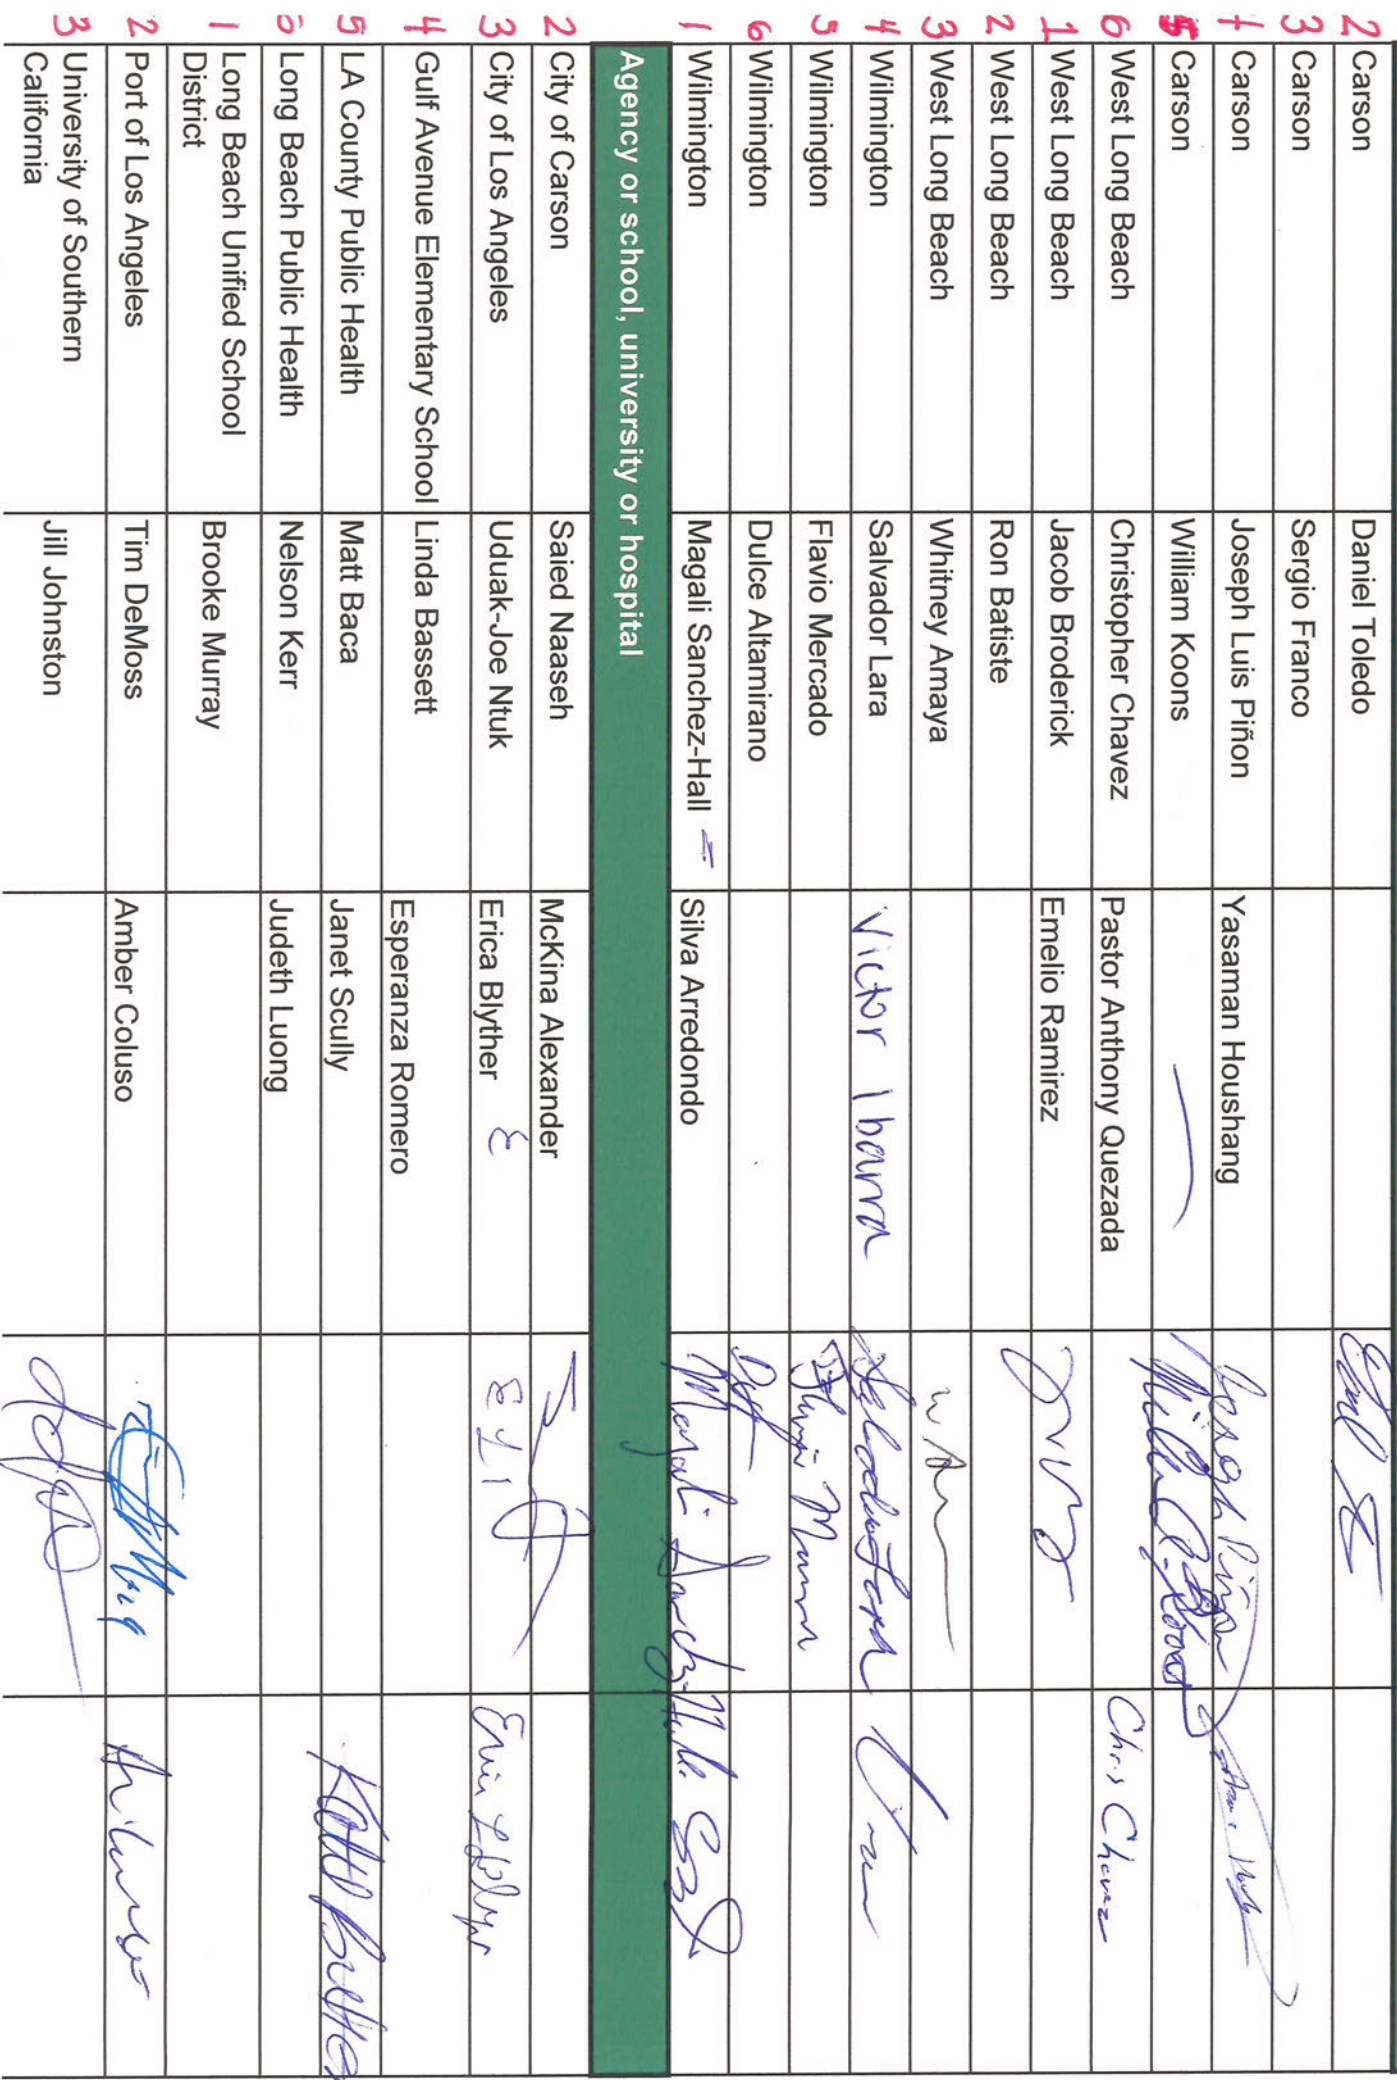 2 Carson Daniel Toledo
3 Carson Sergio Franco
4 Carson Joseph Luis Piñon Yasaman Houshang Joseph Piñon
5 Carson William Koons
6 West Long Beach Christopher Chavez Pastor Anthony Quezada Chris Chavez
1 West Long Beach Jacob Broderick Emelio Ramirez
2 West Long Beach Ron Batiste
3 West Long Beach Whitney Amaya
4 Wilmington Salvador Lara Victor Ibarra Salvador Lara
5 Wilmington Flavio Mercado
6 Wilmington Dulce Altamirano
1 Wilmington Magali Sanchez-Hall Silva Arredondo Magali Sanchez-Hall
Agency or school, university or hospital
2 City of Carson Saied Naaseh McKina Alexander
3 City of Los Angeles Uduak-Joe Ntuk Erica Blyther
4 Gulf Avenue Elementary School Linda Bassett Esperanza Romero
5 LA County Public Health Matt Baca Janet Scully
6 Long Beach Public Health Nelson Kerr Judeth Luong
1 Long Beach Unified School Brooke Murray
District
2 Port of Los Angeles Tim DeMoss Amber Coluso
3 University of Southern Jill Johnston
California